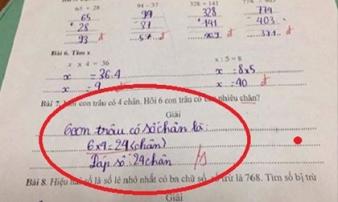 65 + 28
94 - 37
328 + 141
65
28
93
328
141
403
Bài 6. Tìm x
x x 4 = 36
x : 5 = 8
x = 36:4
x = 8x5
x = 9
x = 40
con trâu có 4 chân. Hỏi 6 con trâu có bao nhiêu chân?
Giải
6 con trâu có số chân là:
6x4=24(chân)
Đáp số: 24 chân
Bài 8. Hiệu hai số là số lẻ nhỏ nhất có ba chữ số, số trừ là 768. Tìm số bị trừ
Giải